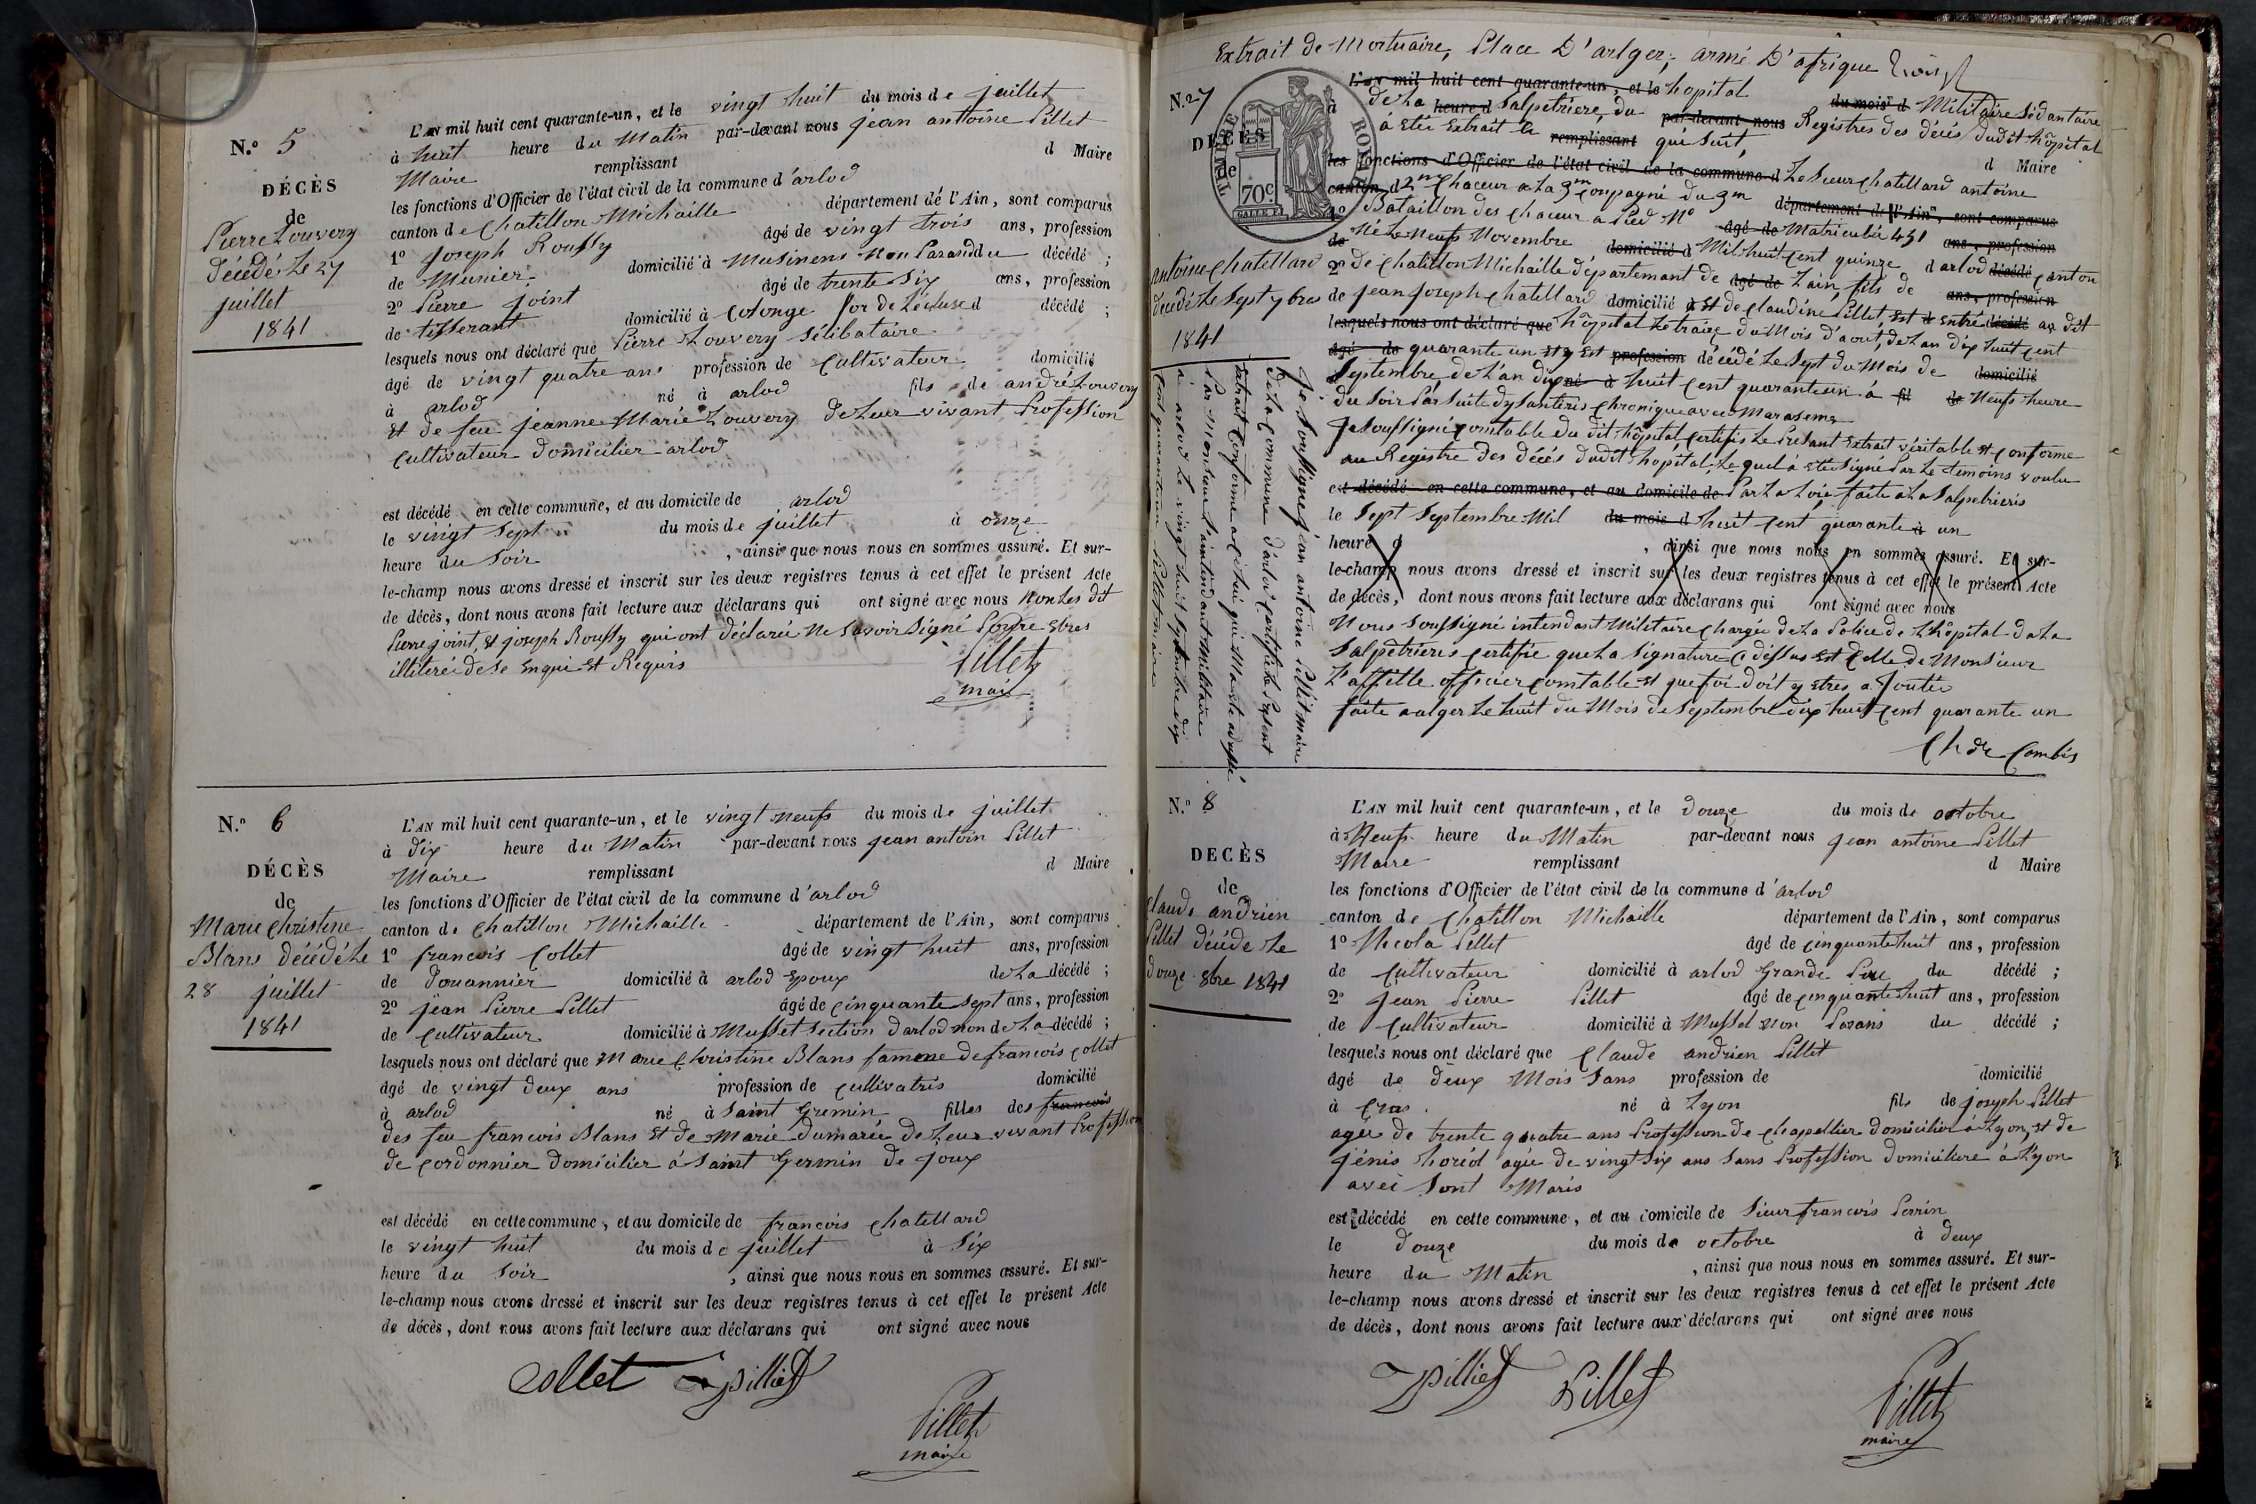 N.º 5
DÉCÈS
de
Pierre Louvery
décédé Le 27
juillet
1841
L'AN mil huit cent quarante-un, et le vingt huit du mois de juillet
à huit heure du Matin par-devant nous jean antoine Pillet
Maire remplissant d Maire
les fonctions d'Officier de l'état civil de la commune d'arlod
canton de Chatillon Michaille département de l'Ain, sont comparus
1º joseph Rouffy âgé de vingt trois ans, profession
de Munier domicilié à Musinens Non Parand du décédé ;
2º Pierre joint âgé de trente Six ans, profession
de tisserant domicilié à Colonge For de L'écluse d décédé ;
lesquels nous ont déclaré que Pierre Louvery Sélibataire
âgé de vingt quatre ans profession de Cultivateur domicilié
à arlod né à arlod fils de andré Louvery
Et de feu jeanne Marie Louvery de Leur vivant Profession
Cultivateur domicilier arlod
est décédé en cette commune, et au domicile de arlod
le vingt Sept du mois de juillet à onze
heure du Soir , ainsi que nous nous en sommes assuré. Et sur-
le-champ nous avons dressé et inscrit sur les deux registres tenus à cet effet le présent Acte
de décès, dont nous avons fait lecture aux déclarans qui ont signé avec nous Non Les dit
Pierre joint Et joseph Rouffy qui ont déclarée Ne Savoir Signé Pour Etres
illiterée de Se Enqui Et Requis
Pillet
maire
N.º 6
DÉCÈS
de
Marie Christine
Blans décédé Le
28 juillet
1841
L'AN mil huit cent quarante-un, et le vingt neufs du mois de juillet
à dix heure du Matin par-devant nous jean antoin Pillet
Maire remplissant d Maire
les fonctions d'Officier de l'état civil de la commune d'arlod
canton de Chatillon Michaille département de l'Ain, sont comparus
1º francois Collet âgé de vingt huit ans, profession
de douannier domicilié à arlod Epoux de La décédé ;
2º jean Pierre Pillet âgé de cinquante Sept ans, profession
de Cultivateur domicilié à Mussel Section darlod non de La décédé ;
lesquels nous ont déclaré que Marie Christine Blans famme de francois Collet
âgé de vingt deux ans profession de cullivatris domicilié
à arlod né à Saint Gremin filles des francois
des feu francois Blans Et de Marie Dumarée de Leur vivant Profession
de Cordonnier domicilier à Saint Germin de joux
est décédé en cette commune, et au domicile de francois Chatellard
le vingt huit du mois de juillet à Six
heure du Soir , ainsi que nous nous en sommes assuré. Et sur-
le-champ nous avons dressé et inscrit sur les deux registres tenus à cet effet le présent Acte
de décès, dont nous avons fait lecture aux déclarans qui ont signé avec nous
Collet pilliet
Pillet
maire
Extrait de Mortuaire, Place D'arlger, armé D'afrique
N.º 7
DÉCÈS
de
TIMBRE ROYAL
70c.
antoine Chatellard
décédé Le Sept 7bres
1841
L'AN mil huit cent quarante-un, et le hopital du mois d Militaire Sidantaire
à de La heure d Salpetriere, du par-devant nous Registres des décés dudit hôpital
à Etée Extrait Ce remplissant qui Suit, d Maire
les fonctions d'Officier de l'état civil de la commune d Le Sieur Chatellard antoine
canton d 2me Chaceur a La 3me Compagnie du 3m département de l'Ain, sont comparus
1º Bataillon des Chaceur a Pied Nº âgé de Matriculée 451 ans, profession
de Né Le Neufs Novembre domicilié d Mil huit Cent quinze d arlod décédé Canton
2º de Chatillon Michaille département de âgé de Lain, fils de ans, profession
de jean joseph Chatellard domicilié à Et de Claudine Pillet, Est d Entré décédé au dit
lesquels nous ont déclaré que hôpital Le traize du Mois d'aout, de Lan dix huit Cent
âgé de quarante un Et y Est profession décédé Le Sept du Mois de domicilié
à Septembre de L'an dix né à huit Cent quarante un à fil de Neufs heure
du Soir Par Suite dysanteris Chronique avec Marasme
Je Soussigné Comtable du dit hôpital Certifie Le Présant Extrait véritable Et Conforme
au Registre des décés dudit hôpital Le quel à Etée Signé Par Le temoins voulu
est décédé en cette commune, et au domicile de Par La Loie faite a La Salpetrieris
le Sept Septembre Mil du mois d huit Cent quarante à un
heure d , ainsi que nous nous en sommes assuré. Et sur-
le-champ nous avons dressé et inscrit sur les deux registres tenus à cet effet le présent Acte
de décès, dont nous avons fait lecture aux déclarans qui ont signé avec nous
Nous Soussigné intendant Militaire Chargée de La Police de L'hôpital da La
Salpetrieris Certifie que La Signature Ci dessus Est Celle de Monsieur
Laffitte officier Comtable Et que foi doit y Etres a joutée
faite a alger Le huit du Mois de Septembre dix huit Cent quarante un
Ch de Combis
Je Soussigné jean antoine Pillet maire
de La Commune d'arlod Certifie Le présent
Extrait Conforme a Celui qui M'a été adressé
Par Monsieur L'intendant Militaire
à arlod Le vingt huit Septembre dix
huit Cent quarante un Pillet maire
N.º 8
DECÈS
de
Claude andrien
Pillet décédé Le
douze 8bre 1841
L'AN mil huit cent quarante-un, et le douze du mois de octobre
à Neufs heure du Matin par-devant nous jean antoine Pillet
Maire remplissant d Maire
les fonctions d'Officier de l'état civil de la commune d'arlod
canton de Chatillon Michaille département de l'Ain, sont comparus
1º Nicola Pillet âgé de cinquante huit ans, profession
de Cultivateur domicilié à arlod Grande Pere du décédé ;
2º jean Pierre Pillet âgé de cinquante huit ans, profession
de Cultivateur domicilié à Mussel non Parans du décédé ;
lesquels nous ont déclaré que Claude andrien Pillet
âgé de deux Mois Sans profession de domicilié
à Cras né à Lyon fils de joseph Pillet
agée de trente quatre ans Profession de Chapellier domicilier à Lyon, Et de
jénis horiol agée de vingt Six ans Sans Profession domiciliere à Lyon
avec Sont Maris
est décédé en cette commune, et au domicile de Sieur francois Perrin
le douze du mois de octobre à deux
heure du Matin , ainsi que nous nous en sommes assuré. Et sur-
le-champ nous avons dressé et inscrit sur les deux registres tenus à cet effet le présent Acte
de décès, dont nous avons fait lecture aux déclarans qui ont signé avec nous
pilliet Pillet
Pillet
maire